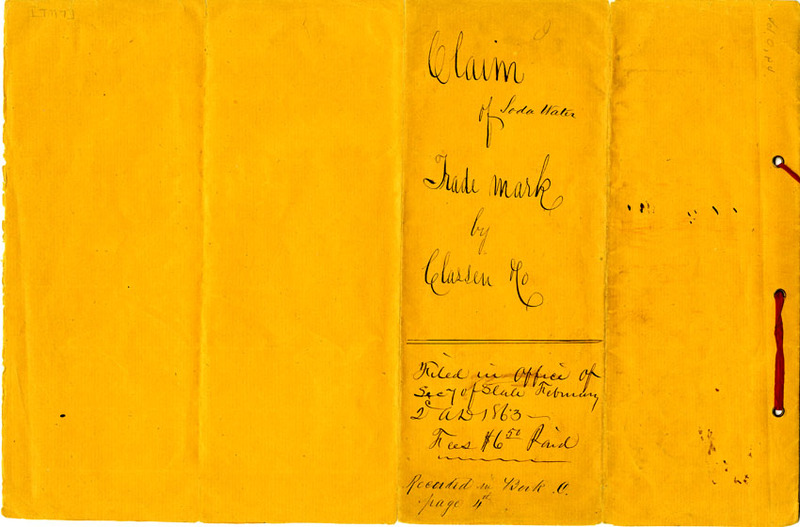 Claim
of Soda Water
Trade mark
by
Classen & Co
Filed in Office of
Secy of State February
2d AD 1863
Fees $6 50 Paid
Recorded in Book C.
page 4